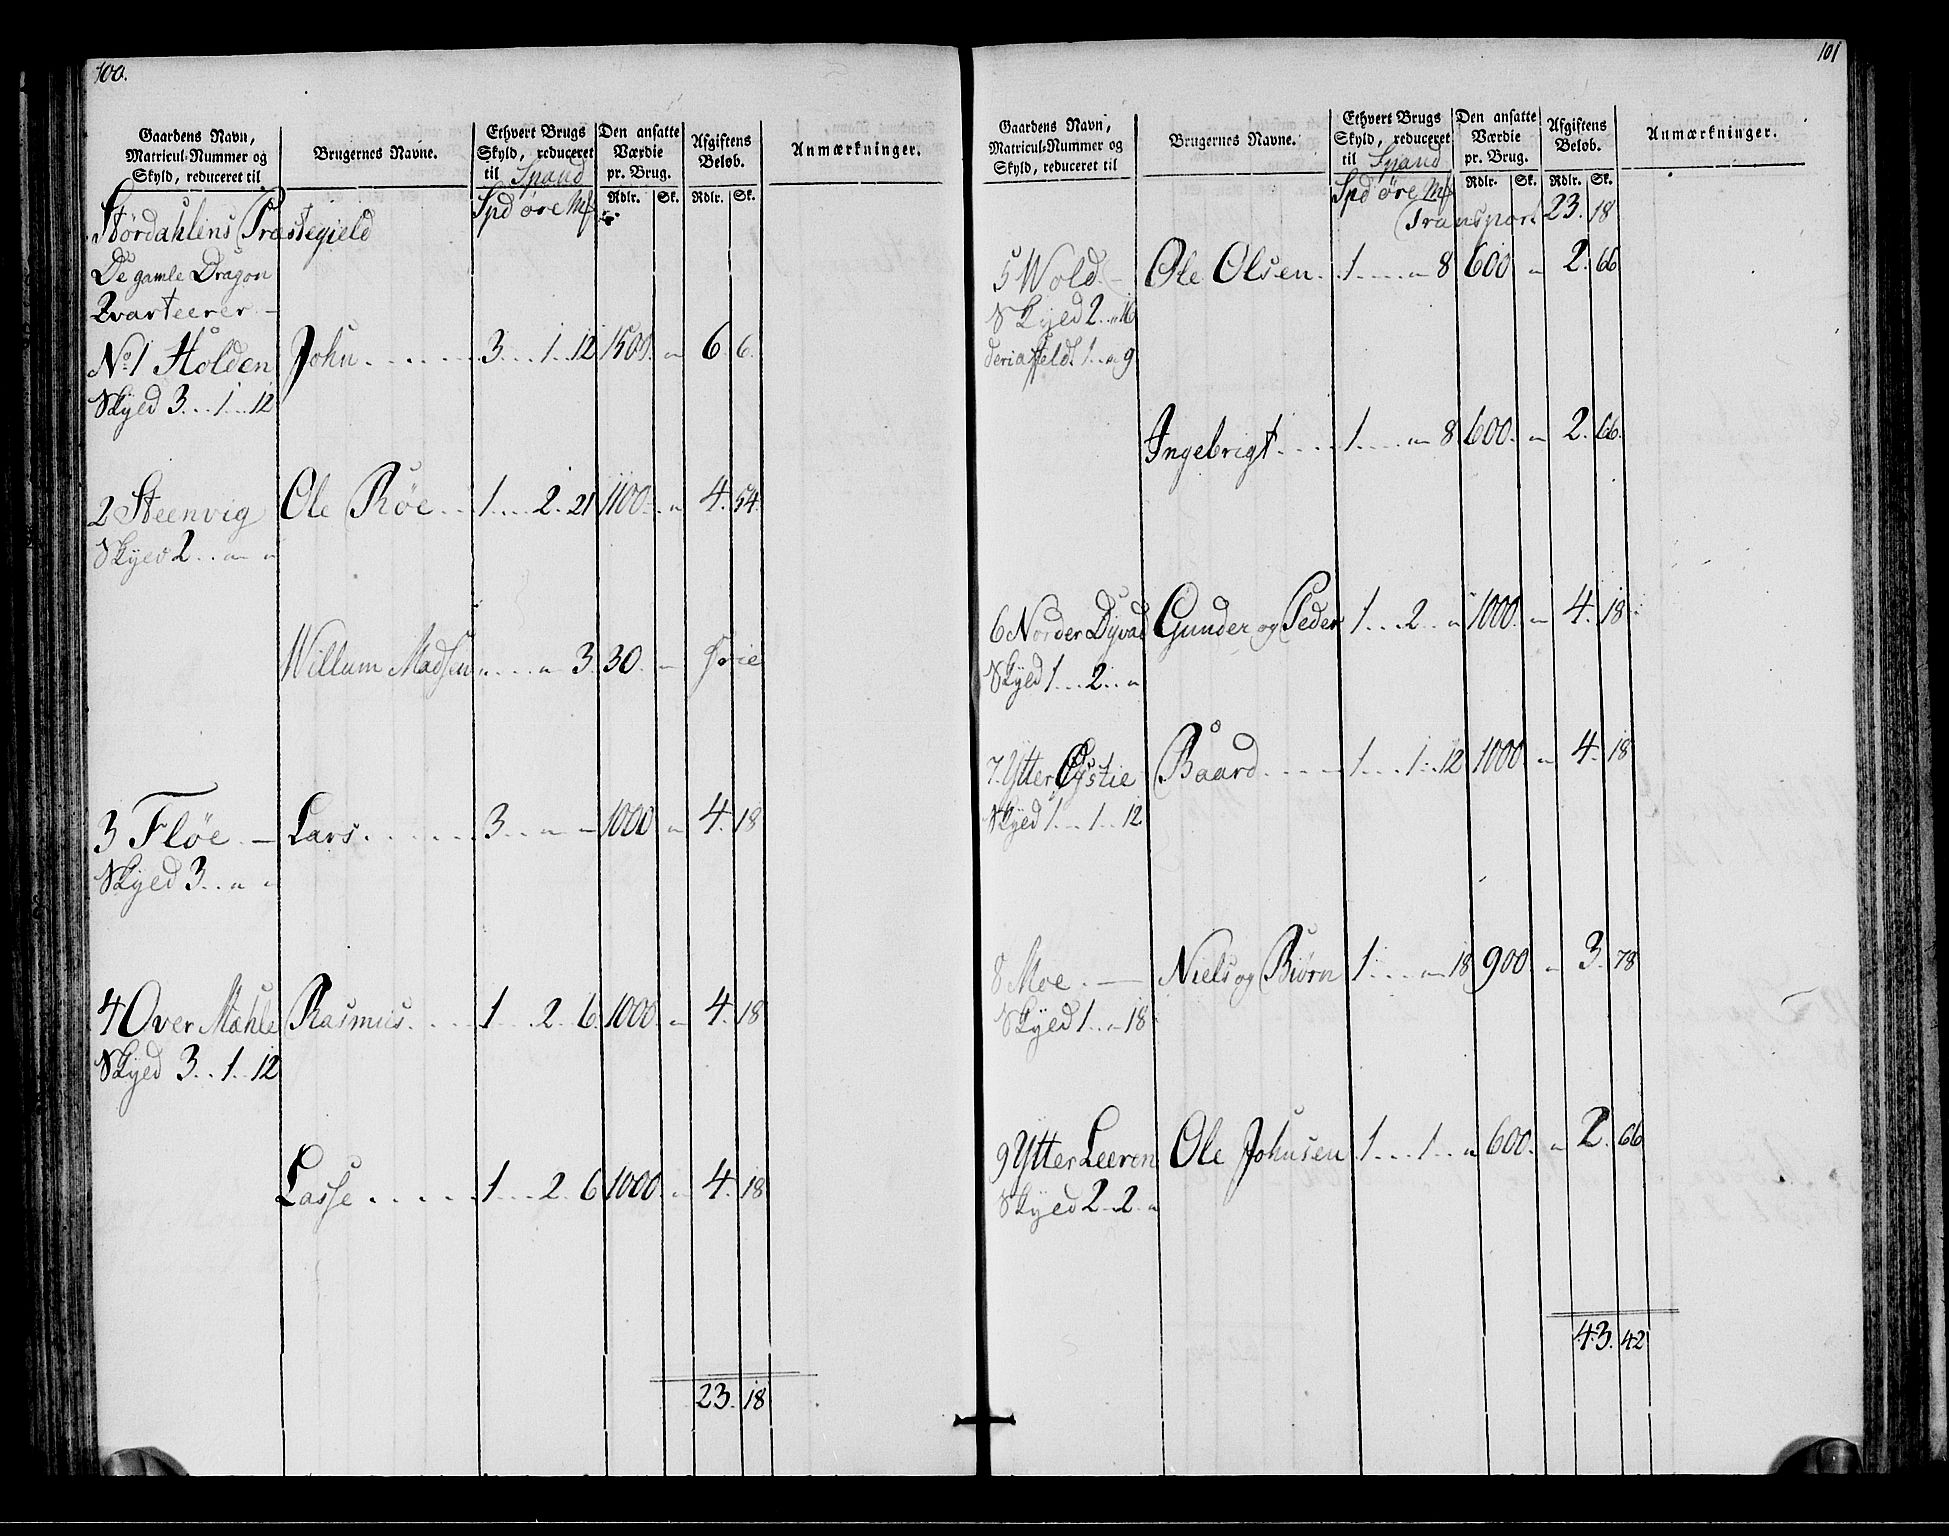 100.
Gaardens Navn, Matricul-Nummer og Skyld, reduceret til
Brugernes Navne.
Ethvert Brugs Skyld, reduceret til Spand
Den ansatte Værdie pr. Brug.
Afgiftens Beløb.
Anmærkninger.
Spd øre Mk
Rdlr. Sk. Rdlr. Sk.
Størdahlens Præstegield
De gamle Dragon
Qvarteerer –
No 1 Holden John . . . . . . 3 . . 1 . . 12 1500. „ 6. 6.
Skyld 3 . . 1 . . 12
2 Steenvig Ole Røe . . 1 . . . 2. 21 1100. „ 4. 54.
Skyld 2 . . „ „
Willum Madsen „ . . . „ 3. 30. „ frie
3 Fløe. — Lars . . . . . . 3 . . „ „ 1000 „ 4. 18
Skyld 3 . . „ „
4 Over Mæhle Rasmus. . . . 1 . . 2. 6. 1000. „ 4. 18
Skyld 3. . 1 . . 12
Lasse . . . . . 1 . . . 2. 6 1000. „ 4. 18
23. 18
101
Gaardens Navn, Matricul-Nummer og Skyld, reduceret til
Brugernes Navne.
Ethvert Brugs Skyld, reduceret til Spand
Den ansatte Værdie pr. Brug.
Afgiftens Beløb.
Anmærkninger.
Rdlr. Sk. Rdlr. Sk.
Spd øre Mk
Transport 23. 18
5 Wold. — Ole Olsen. . 1 . . . „ 8 600 „ 2. 66
Skyld 2 . . „ 16
1 . . „ 9
Ingebrigt . . . . 1 . . . „ 8 600. „ 2. 66.
6 Norder Dyvad Gunder og Peder 1 . . . 2 . . „ 1000. „ 4. 18
Skyld 1 . . . 2 . . „
7. Ytter Øystie Baard . . . . . 1 . . . 1 . . 12 1000 „ 4. 18
Skyld 1 . . . 1 . . 12
8 Moe. — Niels og Biørn 1 . . . „ 18 900. „ 3. 78
Skyld 1 . . „ 18
9 Ytter Leeren Ole Johnsen 1 . . . 1 . . „ 600. „ 2. 66
Skyld 2 . . 2 . . „
43. 42